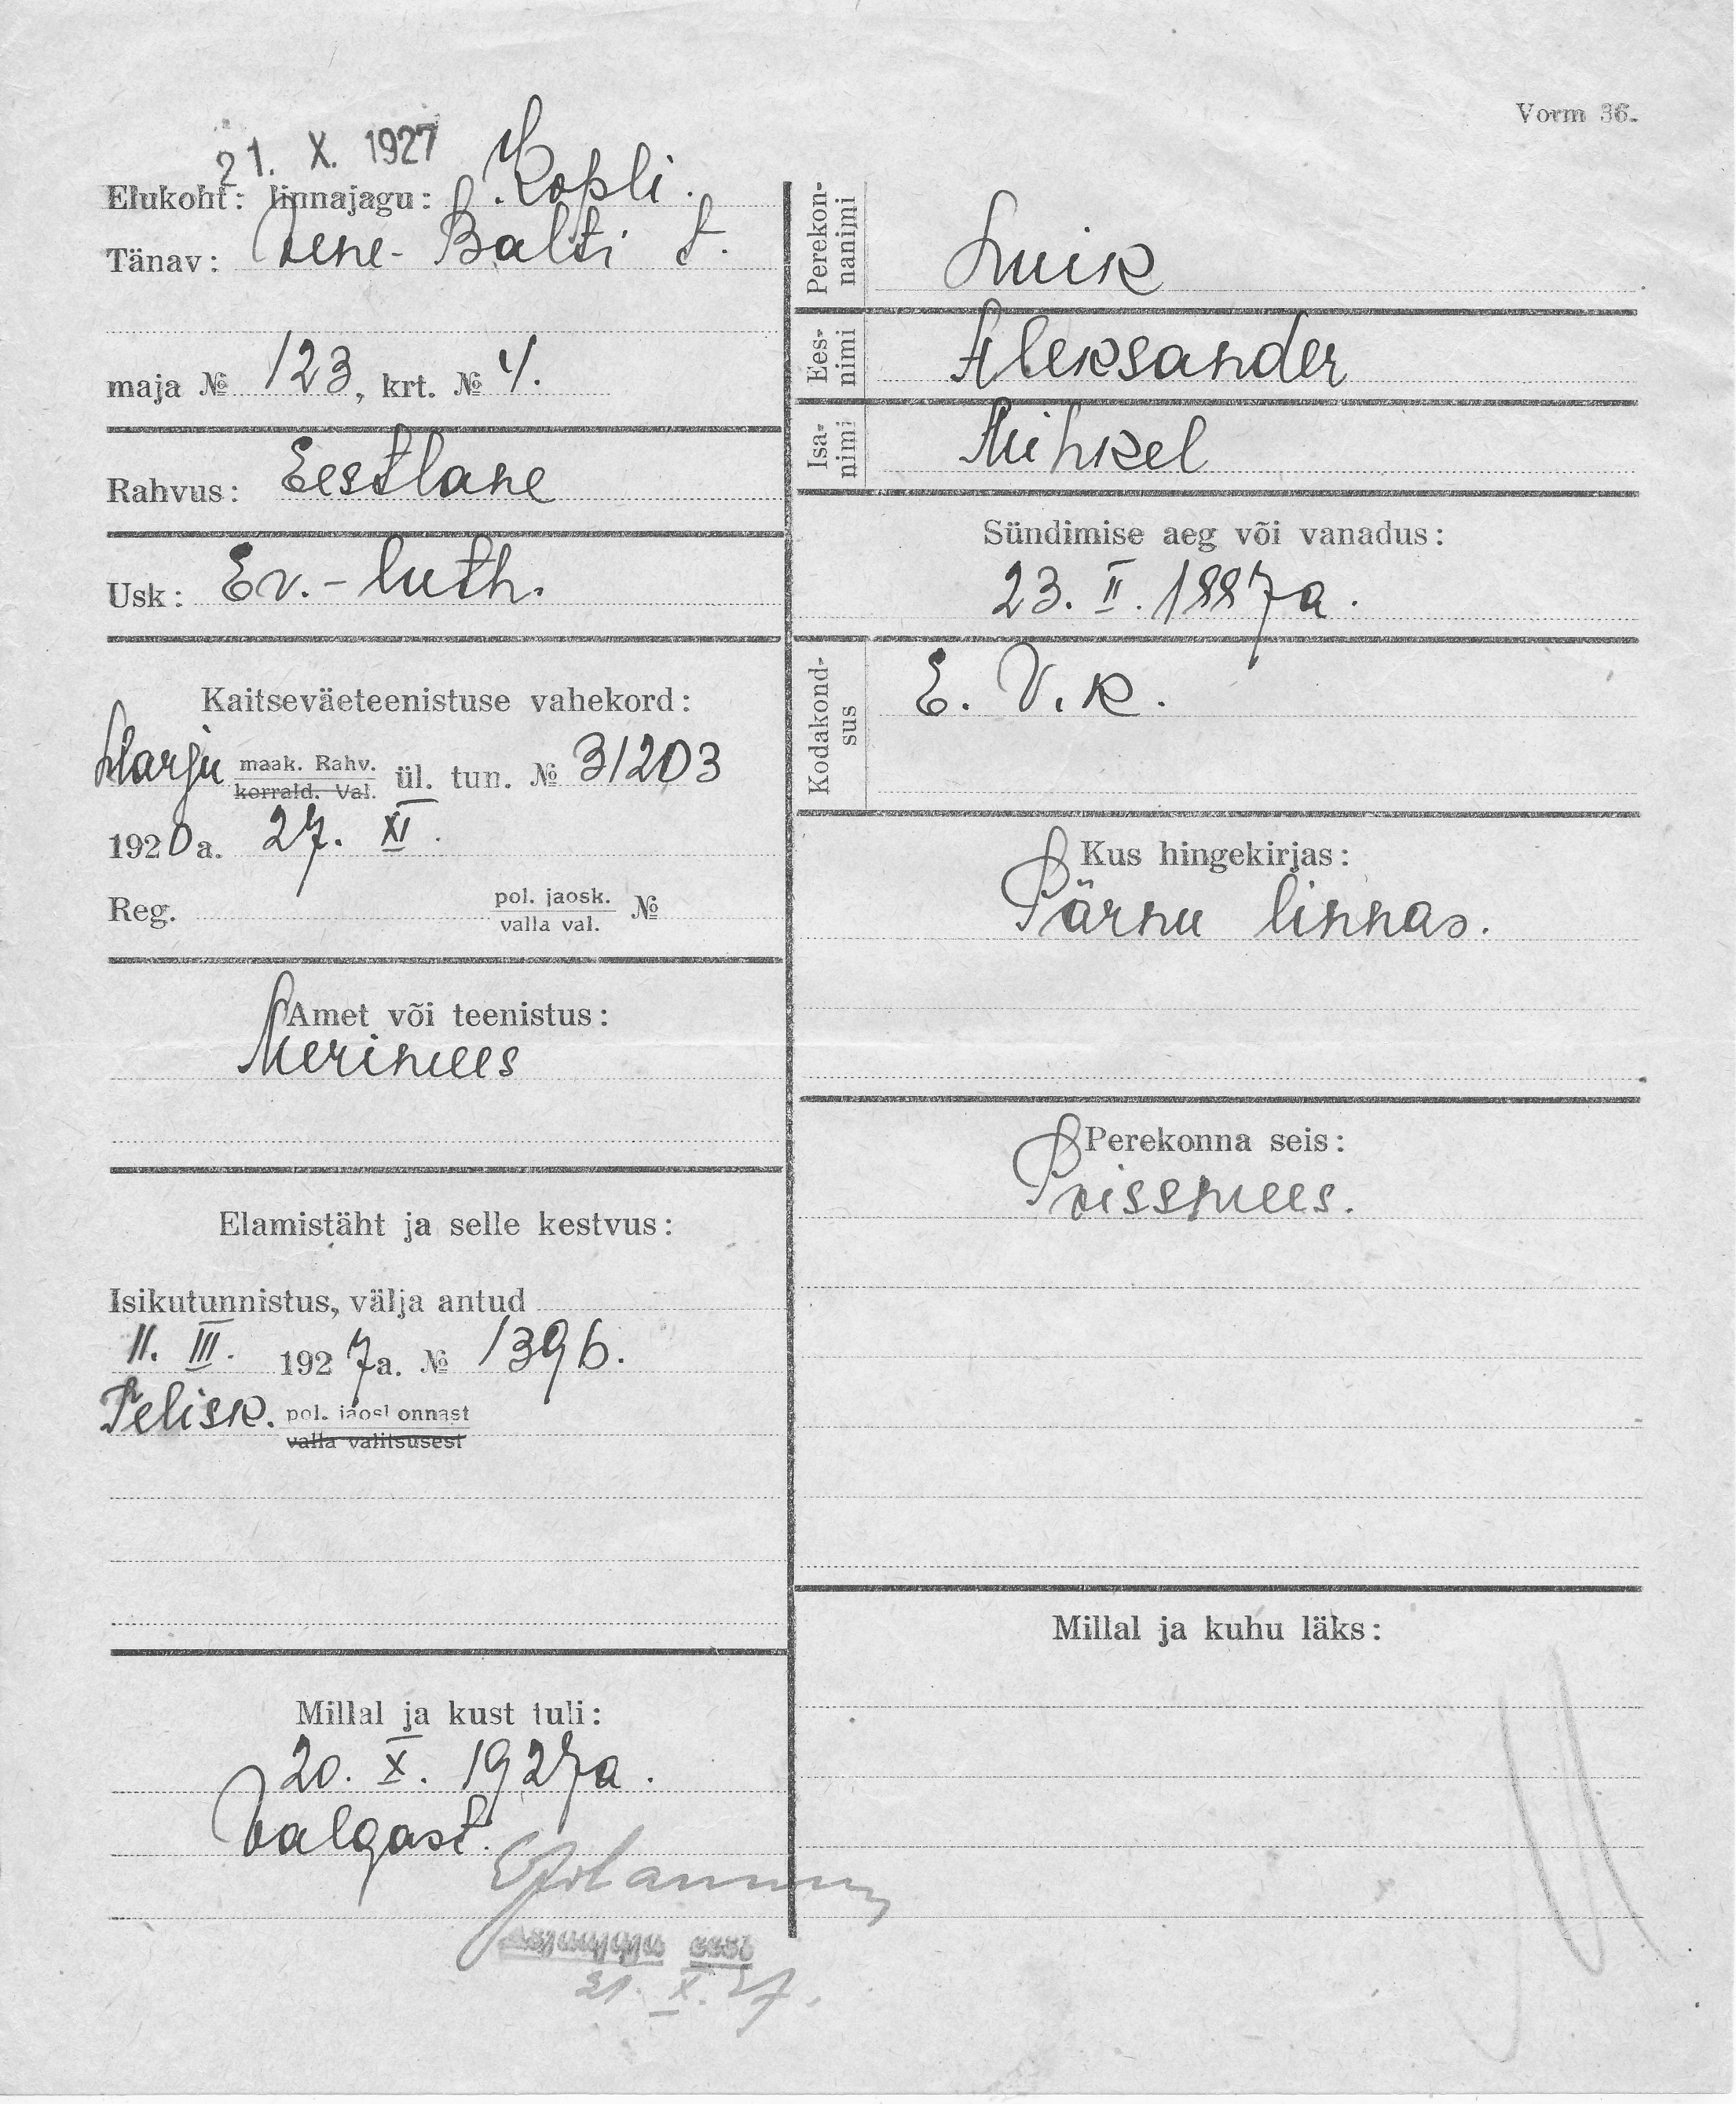 Vorm 36.
21. X. 1927
Elukoht: linnajagu: Kopli.
Tänav: Vene-Balti t.
maja № 123, krt. № 4.
Rahvus: Eestlane
Usk: Ev.-luth.
Kaitseväeteenistuse vahekord:
Harju maak. Rahv. ül. tun. № 31203
korrald. Val.
1920a. 27. XI.
Reg. pol. jaosk. №
valla val.
Amet või teenistus:
Merimees
Elamistäht ja selle kestvus:
Isikutunnistus, välja antud
11. III. 1927a. № 1396.
Pelisk. pol. jaoskonnast
valla valitsusest
Millal ja kust tuli:
20. X. 1927a.
Valgast.
21. X. 27.
Perekon-
nanimi
Luik
Ees-
nimi
Aleksander
Isa-
nimi
Mihkel
Sündimise aeg või vanadus:
23. II. 1887a.
Kodakond-
sus
E. V. k.
Kus hingekirjas:
Pärnu linnas.
Perekonna seis:
Poissmees.
Millal ja kuhu läks: